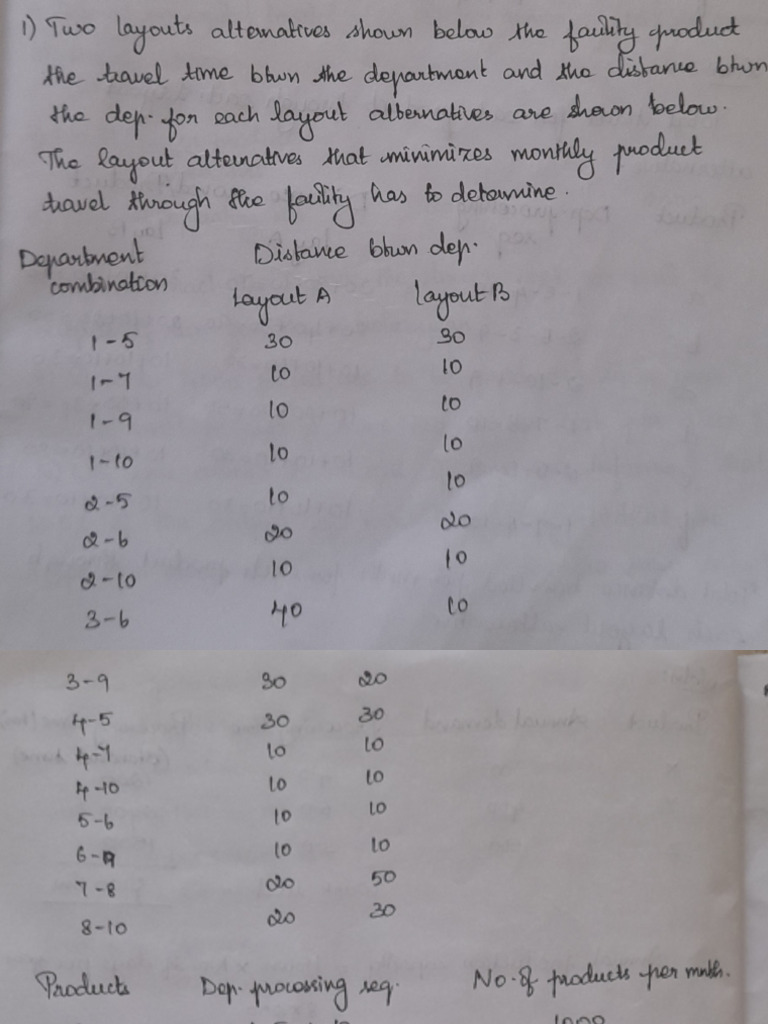 1) Two layouts alternatives shown below the facility product
the travel time btwn the department and the distance btwn
the dep. for each layout alternatives are shown below.
The layout alternatives that minimizes monthly product
travel through the facility has to determine.
Department combination Distance btwn dep.
Layout A Layout B
1-5 30 30
1-7 10 10
1-9 10 10
1-10 10 10
2-5 10 10
2-6 20 20
2-10 10 10
3-6 40 10
3-9 30 20
4-5 30 30
4-7 10 10
4-10 10 10
5-6 10 10
6-9 10 10
7-8 20 50
8-10 20 30
Products Dep. processing seq. No. of products per mnth.